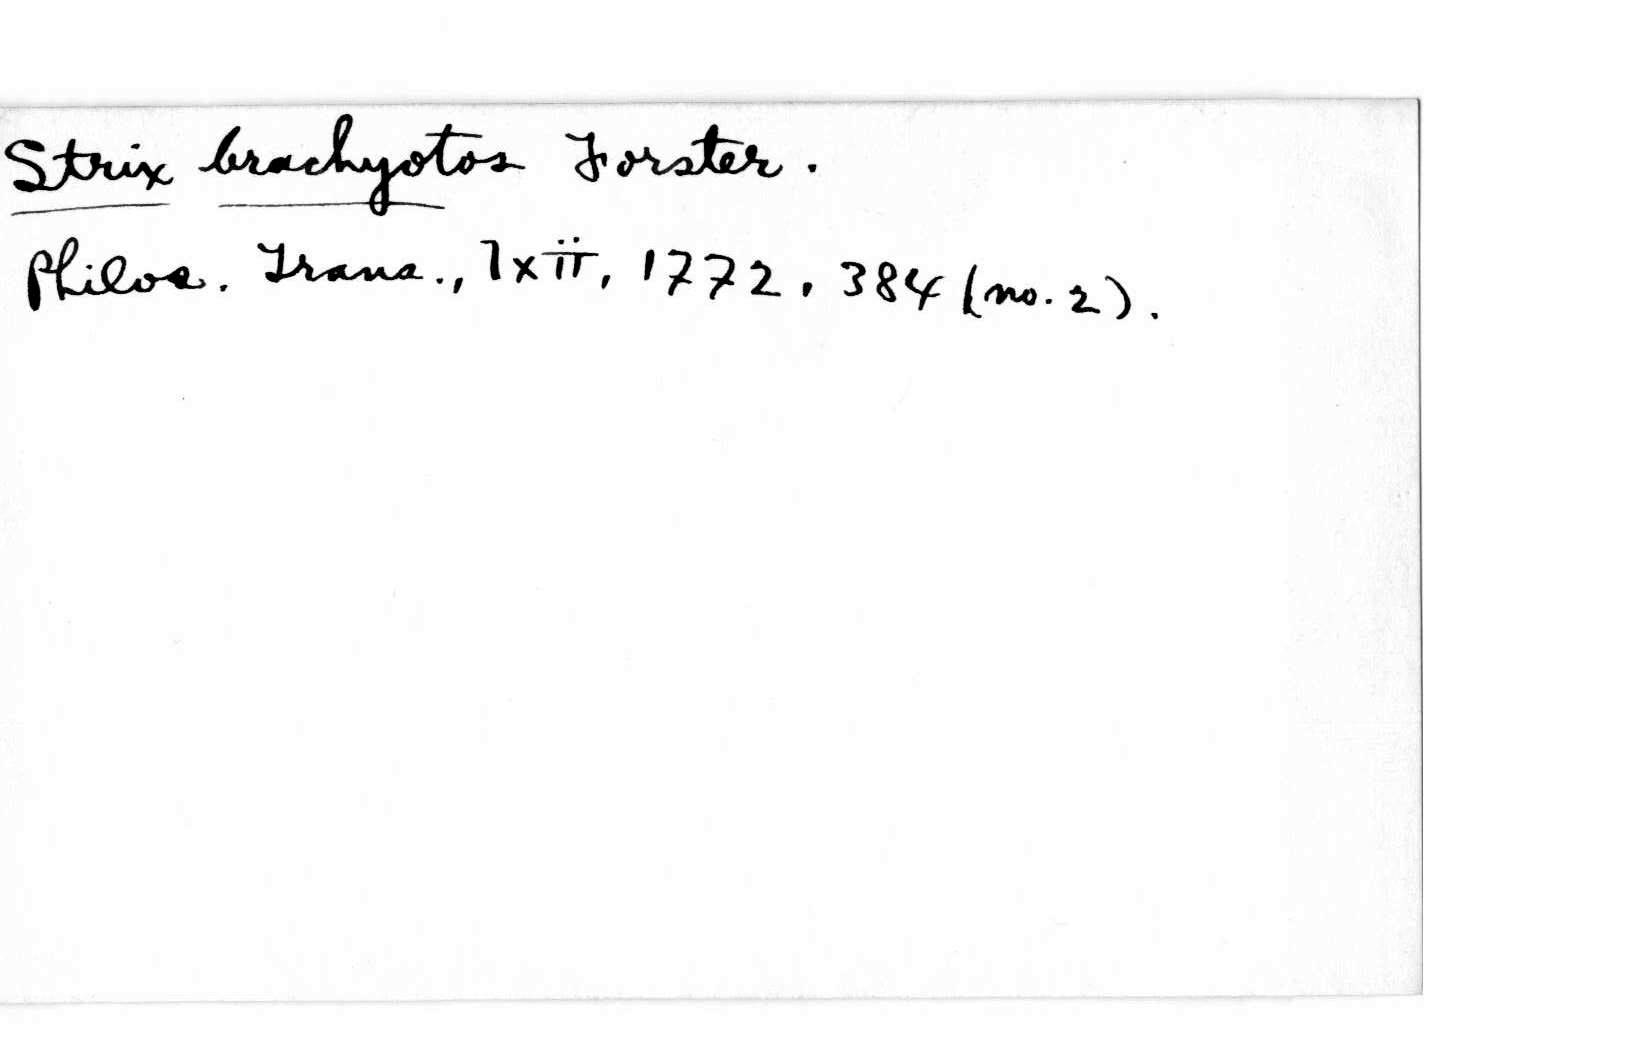 Strix brachyotos Forster.
Philos. Trans., lxii, 1772, 384 (no. 2).